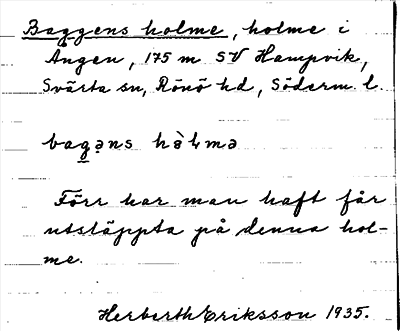 Baggens holme, holme i
Ången, 175 m SV Hampvik,
Svärta sn, Rönö hd, Söderm. l.
bagəns hòlmə
Förr har man haft får
utsläppta på denna hol-
me.
Herberth Eriksson 1935.